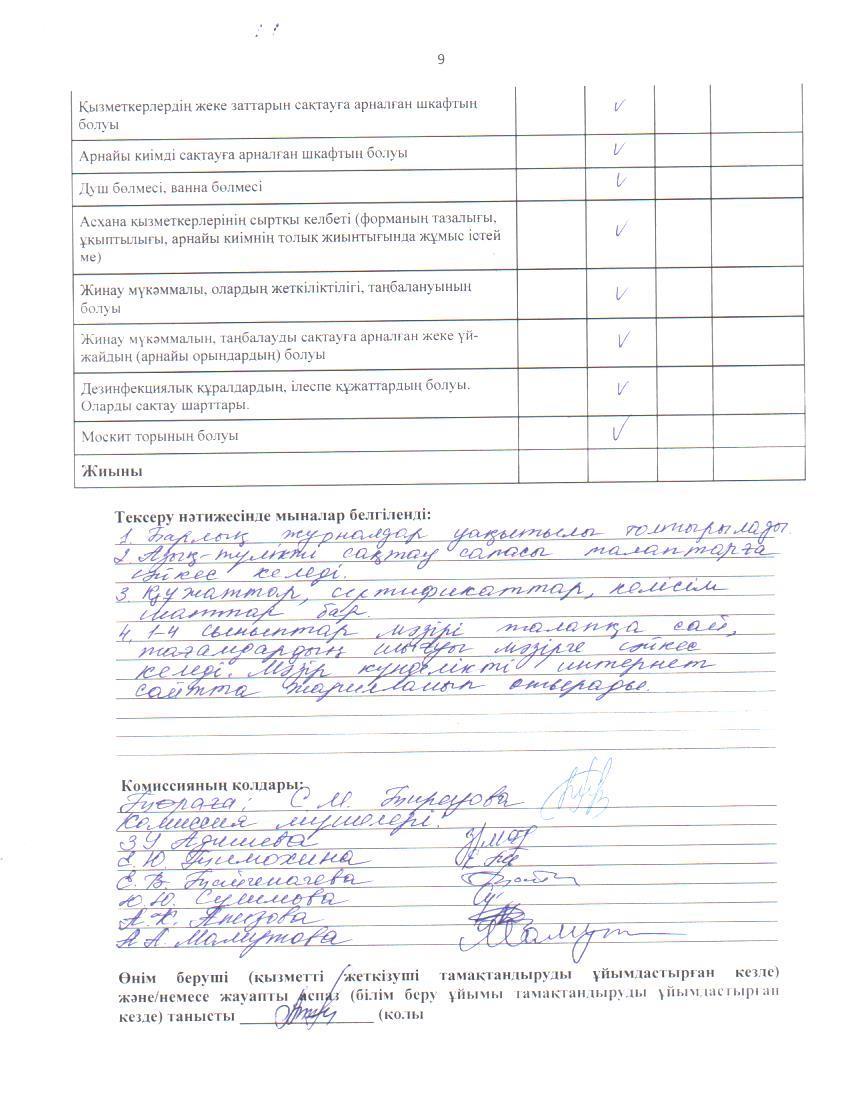 9
Қызметкерлердің жеке заттарын сақтауға арналған шкафтың
болуы
Арнайы киімді сақтауға арналған шкафтың болуы
Душ бөлмесі, ванна бөлмесі
Асхана қызметкерлерінің сыртқы келбеті (форманың тазалығы,
ұқыптылығы, арнайы киімнің толық жиынтығында жұмыс істей
ме)
Жинау мүкәммалы, олардың жеткіліктілігі, таңбалануының
болуы
Жинау мүкәммалын, таңбалауды сақтауға арналған жеке үй-
жайдың (арнайы орындардың) болуы
Дезинфекциялық құралдардың, ілеспе құжаттардың болуы.
Оларды сақтау шарттары.
Москит торының болуы
Жиыны
Тексеру нәтижесінде мыналар белгіленді:
1. Барлық журналдар уақытылы толтырылады.
2. Азық-түлікті сақтау сапасы талаптарға
сәйкес келеді.
3. Құжаттар, сертификаттар, келісім
шарттар бар.
4. 1-4 сыныптар мәзірі талапқа сай,
тағамдардың шығуы мәзірге сәйкес
келеді. Мәзір күнделікті интернет
сайтта жарияланып отырады.
Комиссияның қолдары:
Төраға: С. М.
Комиссия мүшелері:
З У Адишева
Е. Ю. Тимохина
Е. В.
Ю. Ю. Сулимова
А. Х.
А А. Мамутова
Өнім беруші (қызметті жеткізуші тамақтандыруды ұйымдастырған кезде)
және/немесе жауапты аспаз (білім беру ұйымы тамақтандыруды ұйымдастырған
кезде) танысты (қолы